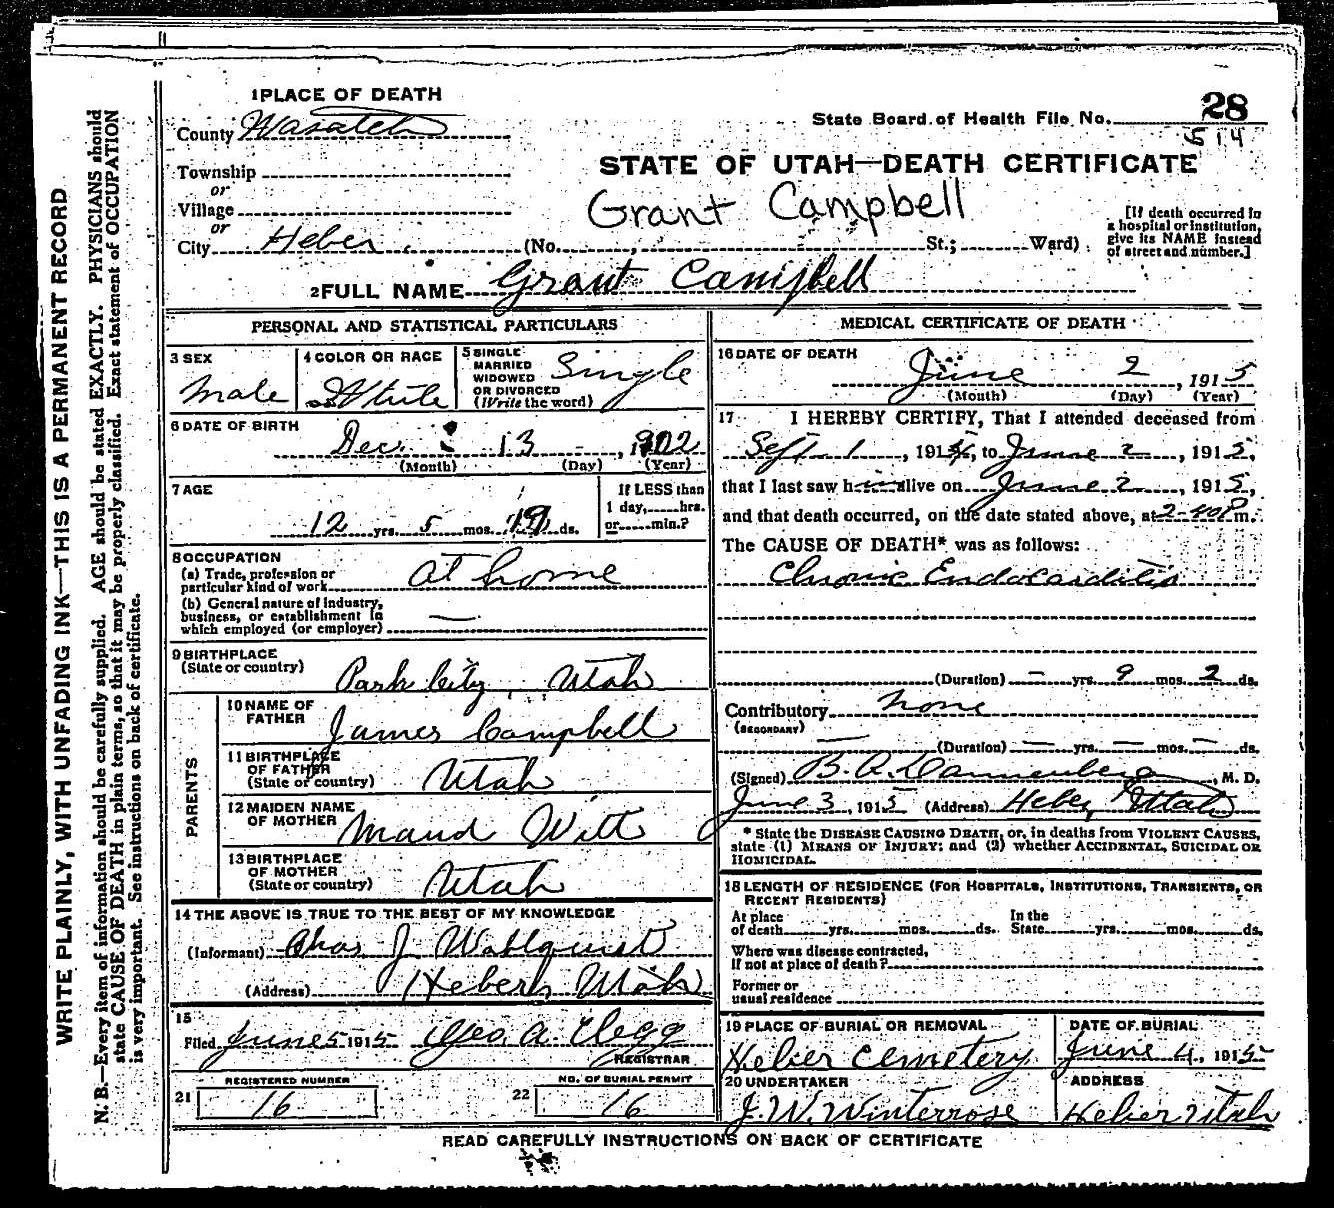 1 PLACE OF DEATH
County Wasatch
State Board of Health File No. 28
514
Township
or
Village
or
City Heber (No. St.; Ward)
STATE OF UTAH—DEATH CERTIFICATE
Grant Campbell
[If death occurred in
a hospital or institution,
give its NAME instead
of street and number.]
2 FULL NAME Grant Campbell
PERSONAL AND STATISTICAL PARTICULARS
3 SEX
Male
4 COLOR OR RACE
White
5 SINGLE
MARRIED
WIDOWED
OR DIVORCED
(Write the word)
Single
6 DATE OF BIRTH
Dec. 13, 1902
(Month) (Day) (Year)
7 AGE
12 yrs. 5 mos. 19 ds.
If LESS than
1 day, hrs.
or min.?
8 OCCUPATION
(a) Trade, profession or
particular kind of work At home
(b) General nature of industry,
business, or establishment in
which employed (or employer) —
9 BIRTHPLACE
(State or country)
Park City, Utah
PARENTS
10 NAME OF
FATHER
James Campbell
11 BIRTHPLACE
OF FATHER
(State or country)
Utah
12 MAIDEN NAME
OF MOTHER
Maud Witt
13 BIRTHPLACE
OF MOTHER
(State or country)
Utah
14 THE ABOVE IS TRUE TO THE BEST OF MY KNOWLEDGE
(Informant) Chas J Wahlquist
(Address) Heber, Utah
15
Filed June 5 1915 Geo. A. Clegg
REGISTRAR
REGISTERED NUMBER
21 16
NO. OF BURIAL PERMIT
22 16
MEDICAL CERTIFICATE OF DEATH
16 DATE OF DEATH
June 2, 1915
(Month) (Day) (Year)
17 I HEREBY CERTIFY, That I attended deceased from
Sept. 1, 1914, to June 2, 1915,
that I last saw him alive on June 2, 1915,
and that death occurred, on the date stated above, at 2-40 P m.
The CAUSE OF DEATH* was as follows:
Chronic Endocarditis
(Duration) — yrs. 9 mos. 2 ds.
Contributory None
(SECONDARY)
(Duration) — yrs. — mos. — ds.
(Signed) B. A. Dannenberg, M. D.
June 3, 1915 (Address) Heber, Utah
* State the DISEASE CAUSING DEATH, or, in deaths from VIOLENT CAUSES,
state (1) MEANS OF INJURY; and (2) whether ACCIDENTAL, SUICIDAL OR
HOMICIDAL.
18 LENGTH OF RESIDENCE (FOR HOSPITALS, INSTITUTIONS, TRANSIENTS, OR
RECENT RESIDENTS)
At place
of death yrs. mos. ds.
In the
State yrs. mos. ds.
Where was disease contracted,
If not at place of death?
Former or
usual residence
19 PLACE OF BURIAL OR REMOVAL
Heber Cemetery
DATE OF BURIAL
June 4, 1915
20 UNDERTAKER
J. W. Winterrose
ADDRESS
Heber Utah
READ CAREFULLY INSTRUCTIONS ON BACK OF CERTIFICATE
WRITE PLAINLY, WITH UNFADING INK—THIS IS A PERMANENT RECORD
N. B.—Every item of information should be carefully supplied. AGE should be stated EXACTLY. PHYSICIANS should
state CAUSE OF DEATH in plain terms, so that it may be properly classified. Exact statement of OCCUPATION
is very important. See instructions on back of certificate.